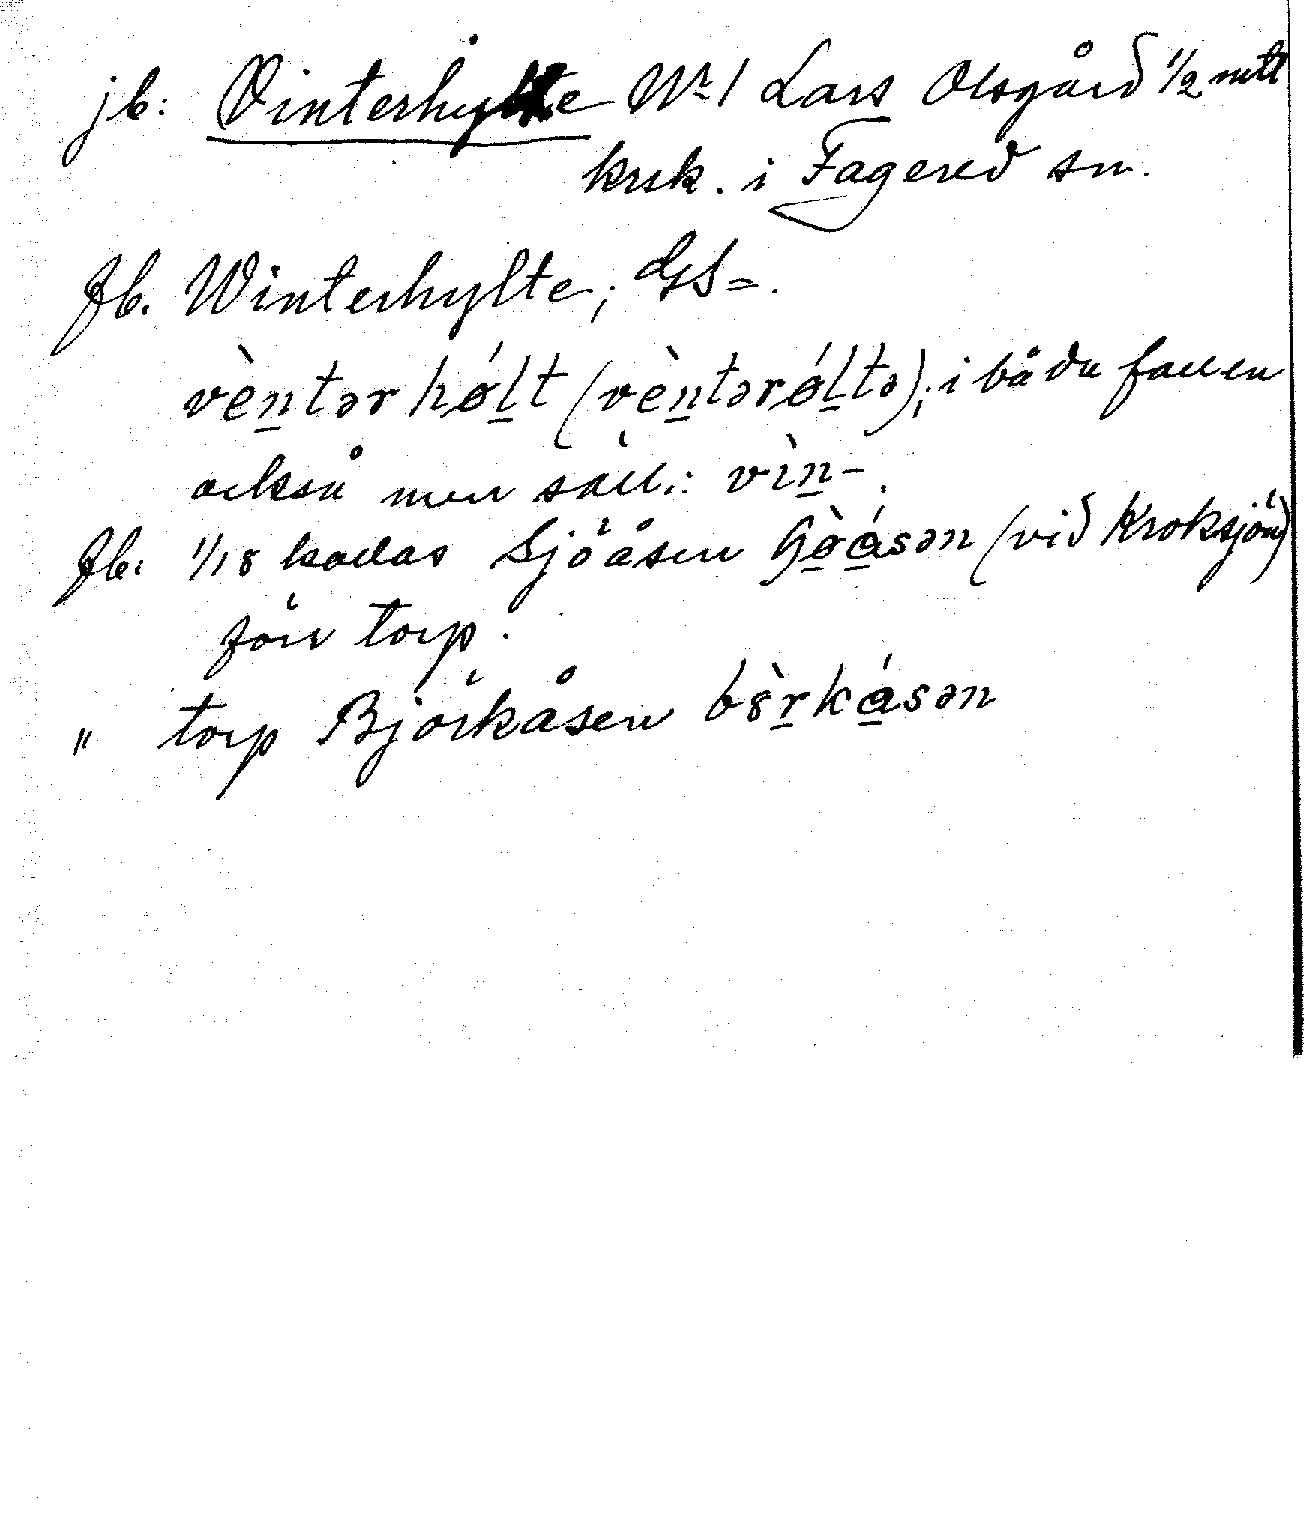 jb: Vinterhylte Nr 1 Lars Olsgård 1/2 mtl
krsk. i Fagered sn.
Jb. Winterhylte; GS=.
vèntər hǿlt (vèntərǿltə); i båda fallen
också men säll.: vìn-.
Jb: 1/18 kallas Sjöåsen (vid Kroksjön)
förr torp.
" torp Björkåsen